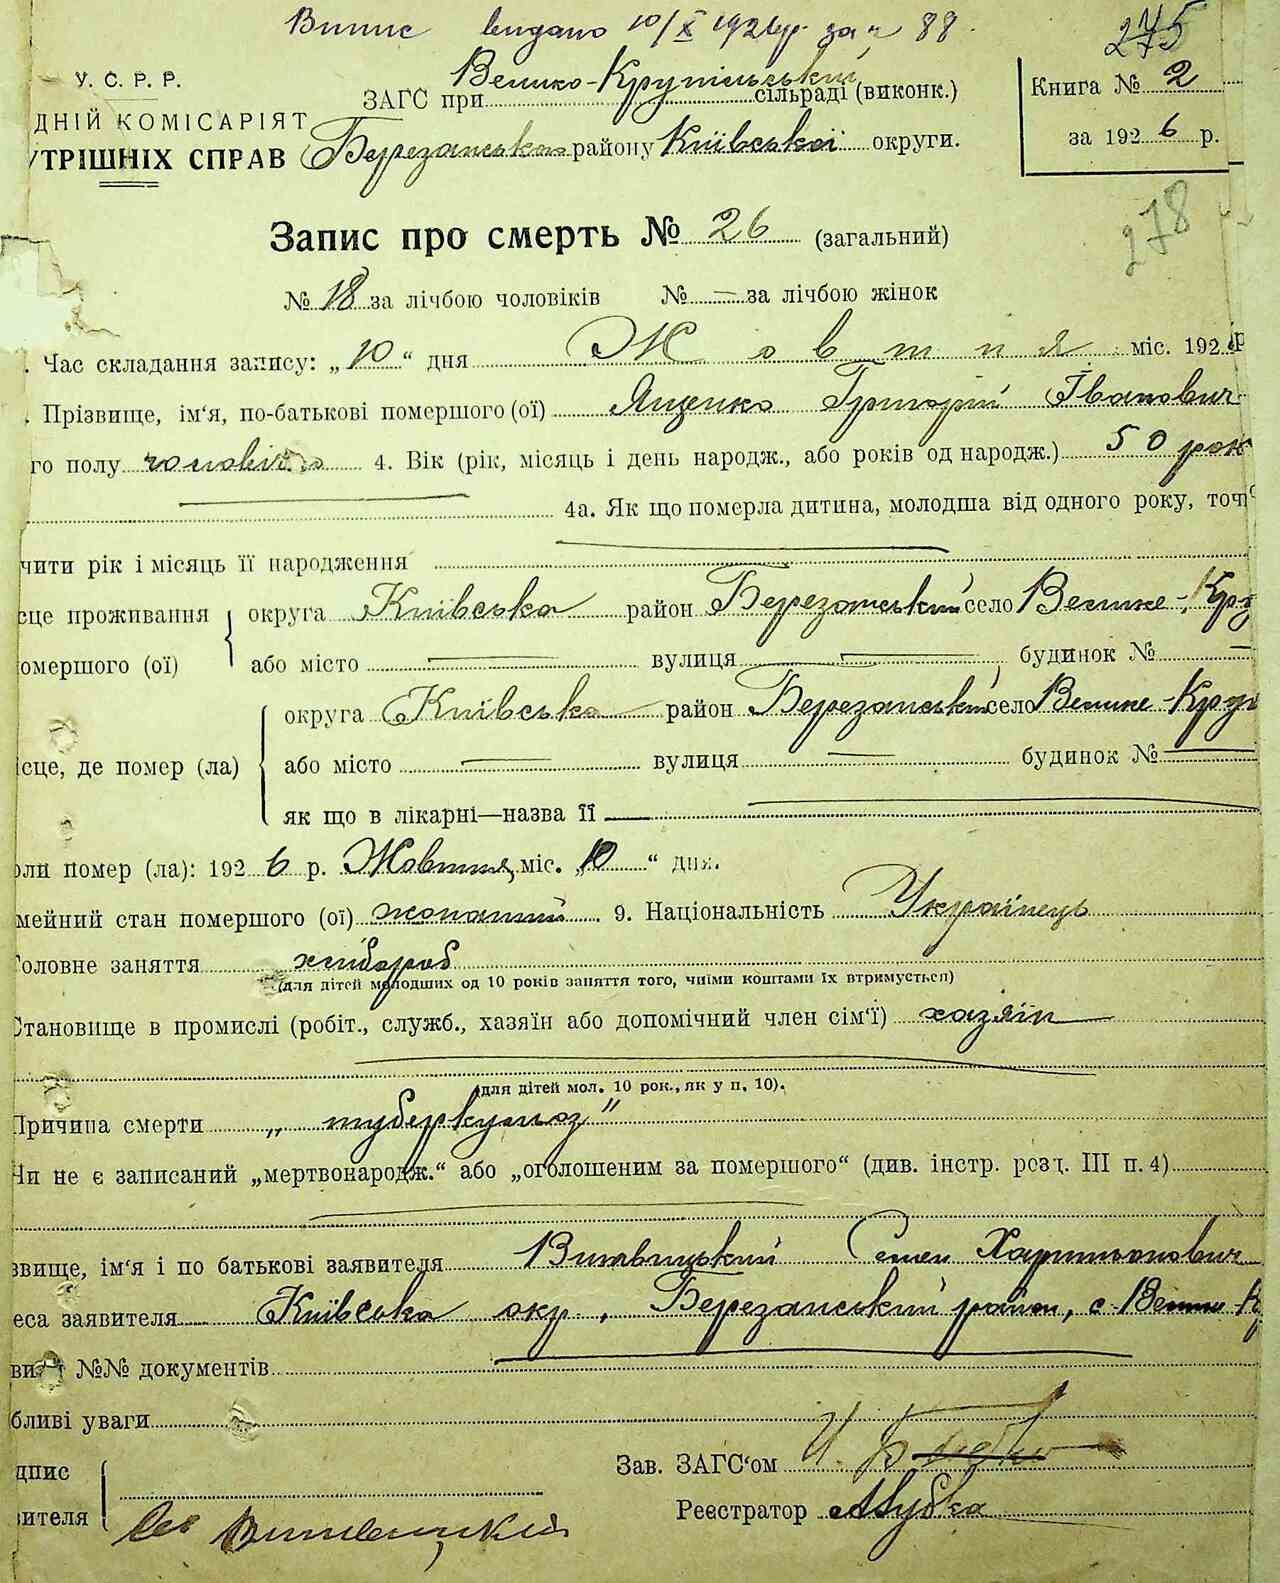 Випис видано 10/X 1926р. за № 88.
275
У. С. Р. Р.
ДНІЙ КОМІСАРІЯТ
УТРІШНІХ СПРАВ
ЗАГС при Велико-Крупільський сільраді (виконк.)
Березанського району Київської округи.
Книга № 2
за 1926 р.
278
Запис про смерть № 26 (загальний)
№ 18 за лічбою чоловіків № — за лічбою жінок
. Час складання запису: „10“ дня Жовтня міс. 192 р
. Прізвище, ім‘я, по-батькові помершого (ої) Ященко Григорій Іванович
го полу чоловічого 4. Вік (рік, місяць і день народж., або років од народж.) 50 рок
4а. Як що померла дитина, молодша від одного року, точн
чити рік і місяць її народження
сце проживання округа Київська район Березанський село Велике-Кру
омершого (ої) або місто — вулиця — будинок № —
округа Київська район Березанський село Велике-Круп
ісце, де помер (ла) або місто — вулиця — будинок № —
як що в лікарні—назва її —
оли помер (ла): 1926 р. Жовтня міс. „10“ дня.
мейний стан помершого (ої) жонатий 9. Національність Українець
Головне заняття хлібороб
(для дітей молодших од 10 років заняття того, чиїми коштами їх втримується)
Становище в промислі (робіт., служб., хазяїн або допомічний член сім‘ї) хазяїн
(для дітей мол. 10 рок., як у п. 10).
Причина смерти „туберкульоз"
Чи не є записаний „мертвонародж.“ або „оголошеним за помершого“ (див. інстр. розд. III п. 4)
звище, ім‘я і по батькові заявителя Витвицький Семен Харитонович
еса заявителя Київська окр., Березанський район, с. Велике К
ви №№ документів
бливі уваги
дпис
вителя
Зав. ЗАГС‘ом
Реєстратор